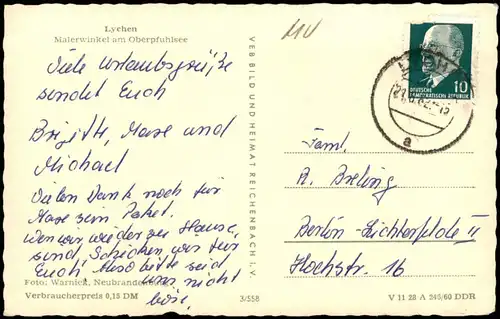 Lychen
Malerwinkel am Oberpfuhlsee
Viele Urlaubsgrüße
sendet Euch
Brigitte, Maxe und
Michael
Vielen Dank noch für
Maxe sein Paket.
Wenn wir wieder zu Hause
sind, Schicken wir für
Euch. Also bitte seid
uns nicht
böse.
Foto: Warnick, Neubrandenburg
Verbraucherpreis 0,15 DM
3/558
VEB BILD UND HEIMAT REICHENBACH I. V.
MV
10
DEUTSCHE
DEMOKRATISCHE REPUBLIK
a
Faml.
A. Breling
Berlin-Lichterfelde II
Hochstr. 16
V 11 28 A 246/60 DDR